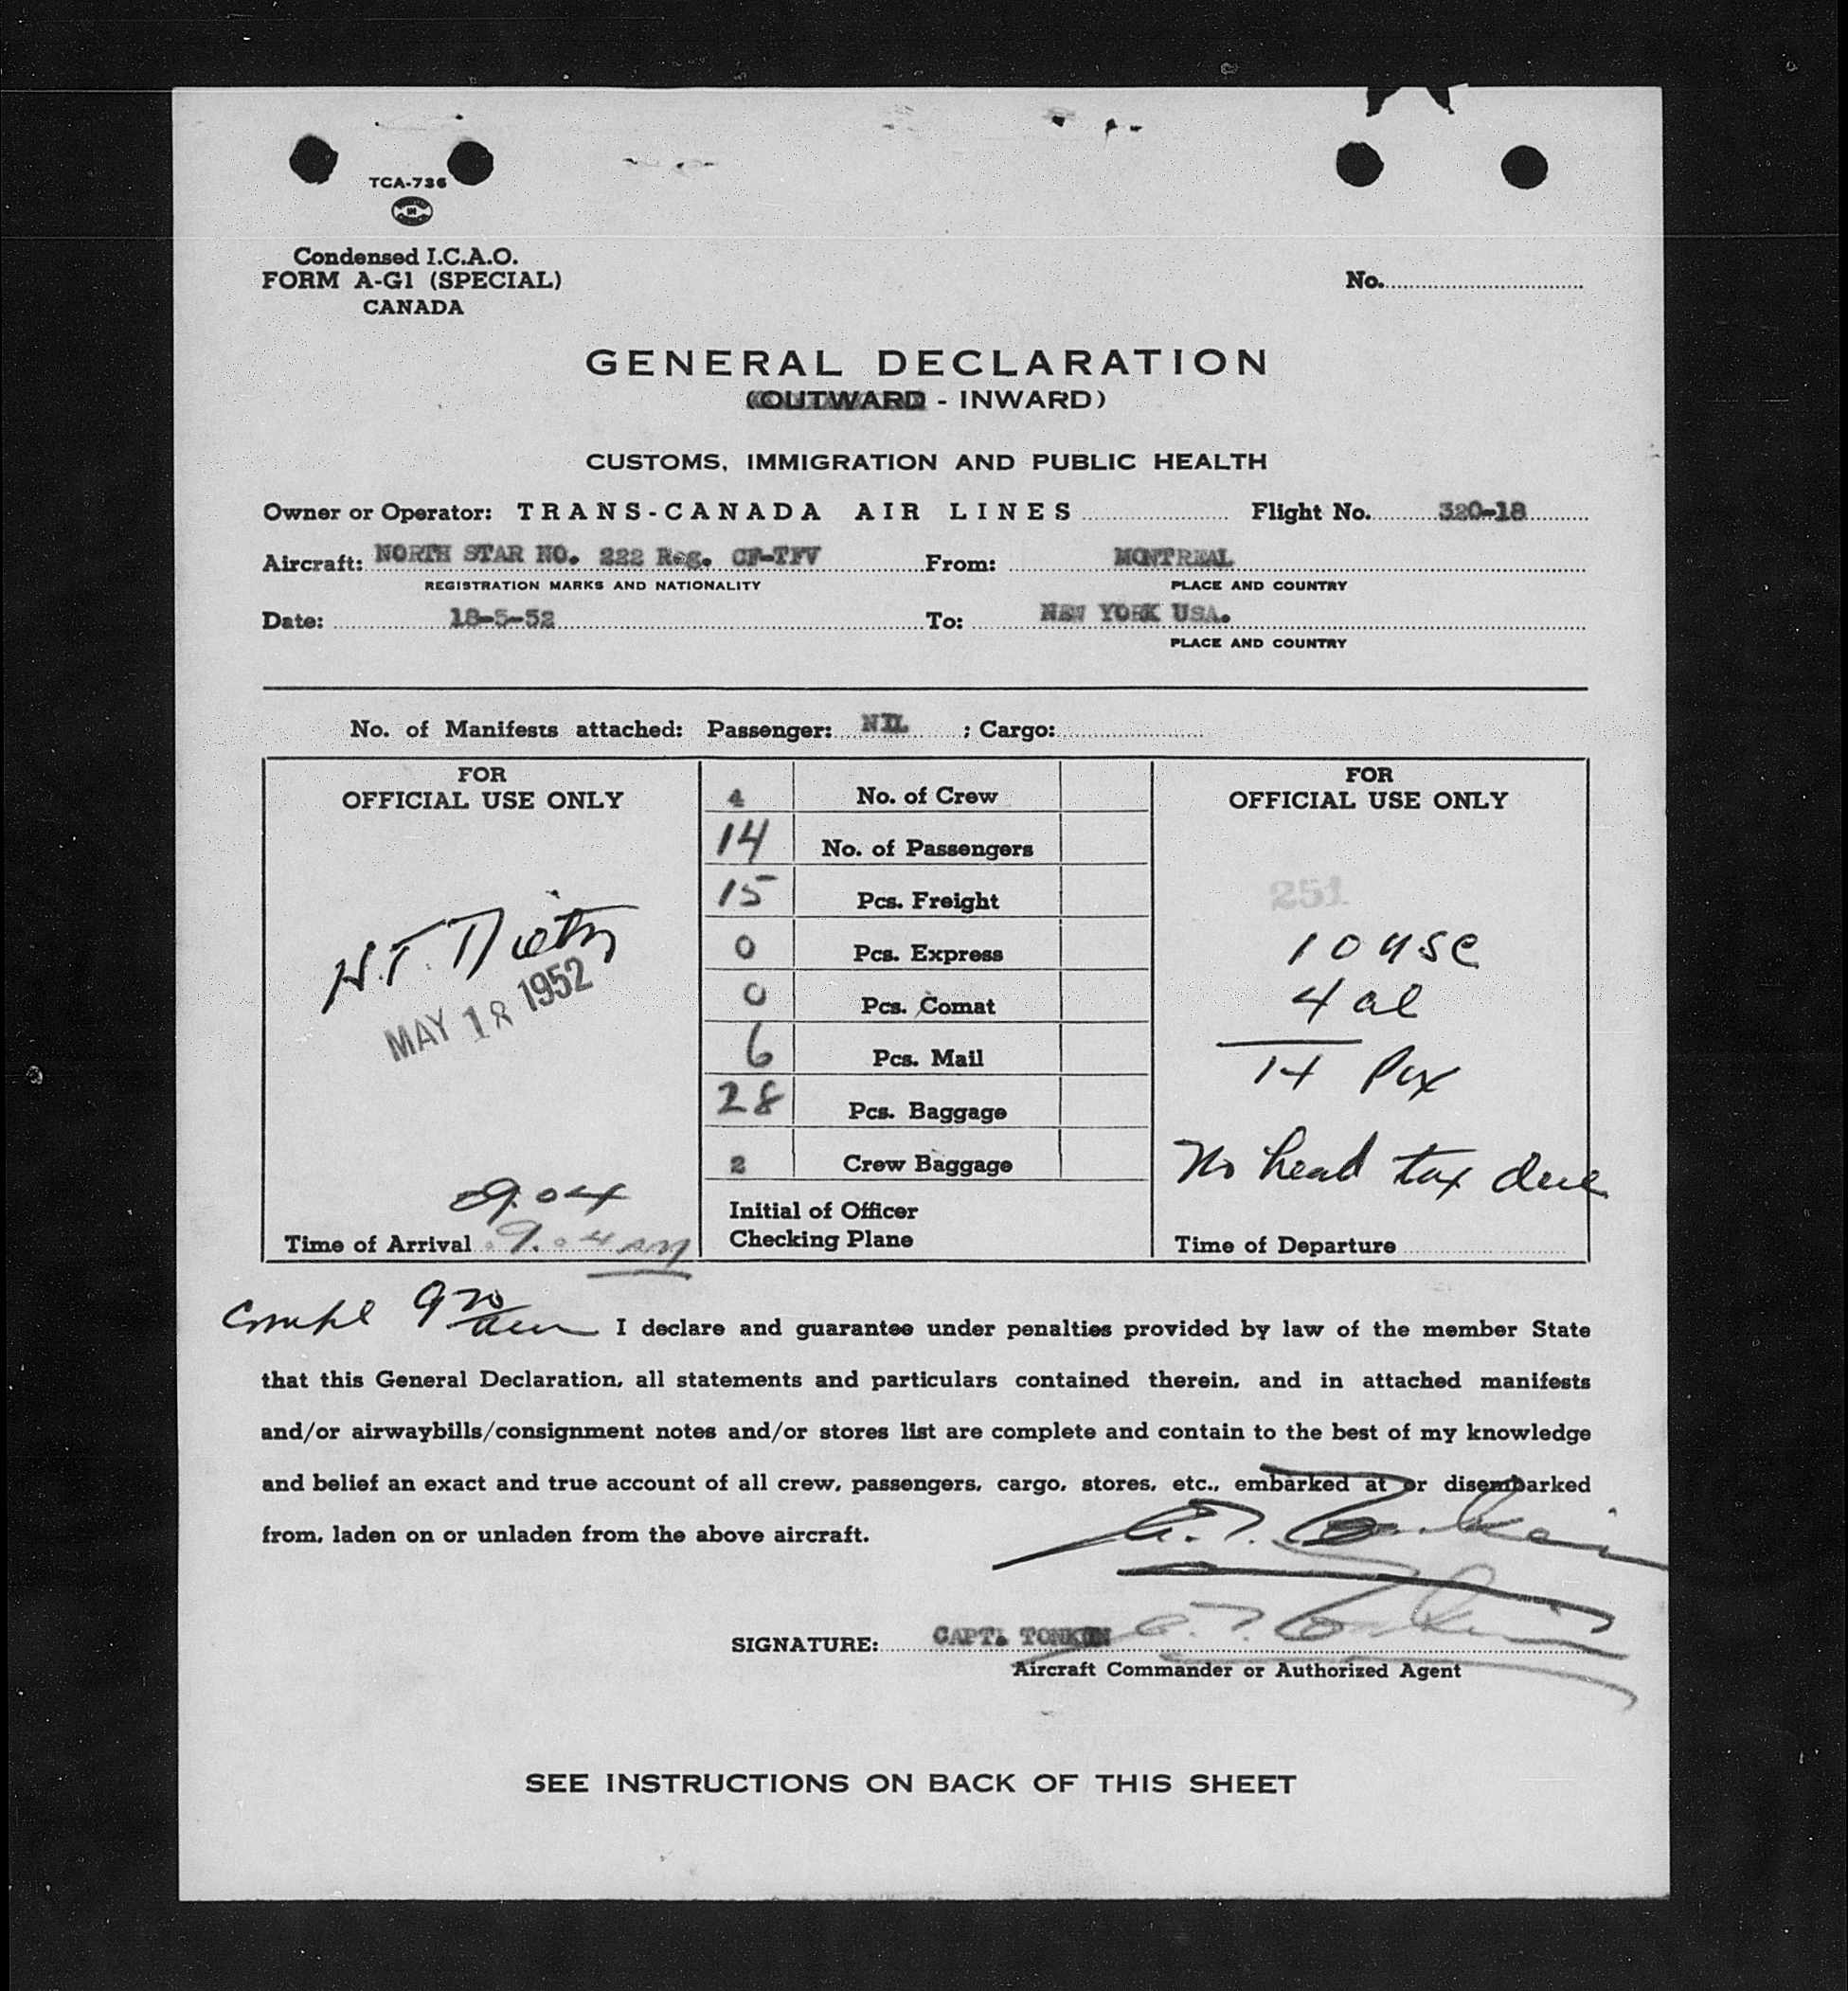 TCA-736
Condensed I.C.A.O.
FORM A-G1 (SPECIAL)
CANADA
No.
GENERAL DECLARATION
(OUTWARD - INWARD)
CUSTOMS, IMMIGRATION AND PUBLIC HEALTH
Owner or Operator: TRANS-CANADA AIR LINES Flight No. 320-18
Aircraft: NORTH STAR NO. 222 Reg. CF-TFV From: MONTREAL
REGISTRATION MARKS AND NATIONALITY PLACE AND COUNTRY
Date: 18-5-52 To: NEW YORK USA.
PLACE AND COUNTRY
No. of Manifests attached: Passenger: NIL ; Cargo:
FOR
OFFICIAL USE ONLY
H.T.
MAY 18 1952
9.04
Time of Arrival 9.04 am
4 No. of Crew
14 No. of Passengers
15 Pcs. Freight
0 Pcs. Express
0 Pcs. Comat
6 Pcs. Mail
28 Pcs. Baggage
2 Crew Baggage
Initial of Officer
Checking Plane
FOR
OFFICIAL USE ONLY
251
10 USC
4 al
14 Pax
No head tax due
Time of Departure
Compl 9 20 am I declare and guarantee under penalties provided by law of the member State
that this General Declaration, all statements and particulars contained therein, and in attached manifests
and/or airwaybills/consignment notes and/or stores list are complete and contain to the best of my knowledge
and belief an exact and true account of all crew, passengers, cargo, stores, etc., embarked at or disembarked
from, laden on or unladen from the above aircraft.
SIGNATURE: CAPT. TONKIN
Aircraft Commander or Authorized Agent
SEE INSTRUCTIONS ON BACK OF THIS SHEET